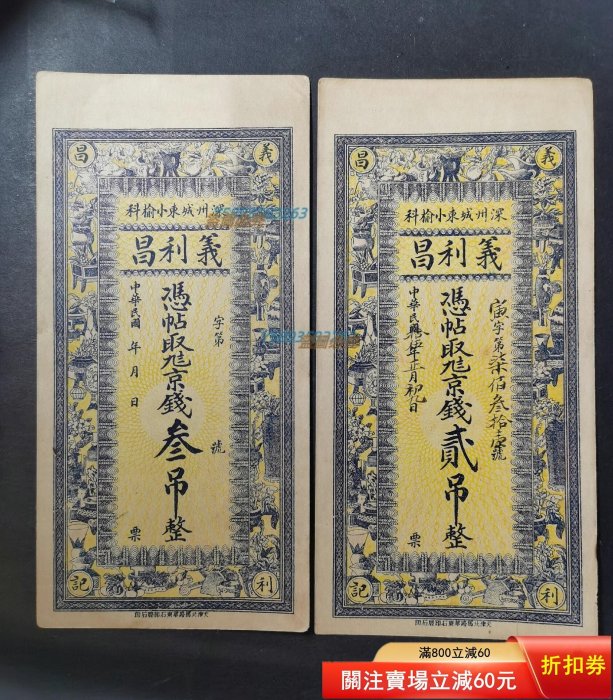 義 昌
深州城東小榆科
義利昌
字第 號
憑帖取京錢叁吊整
中華民國 年 月 日
票
利 記
義 昌
深州城東小榆科
義利昌
寅字第柒佰叁拾號
憑帖取京錢貳吊整
中華民國拾伍年正月初九日
票
利 記
滿800立減60
關注賣場立減60元
折扣券